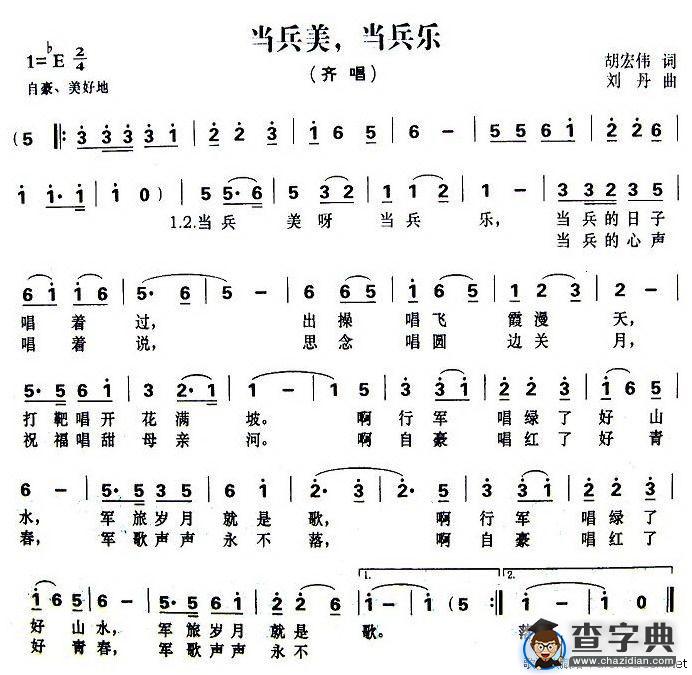 当兵美，当兵乐
1=♭E 2/4
（齐唱）
胡宏伟 词
自豪、美好地
刘丹 曲
(5 ‖: 3 3 3 3 1 | 2 2 3 | 1 6 5 | 6 - | 5 5 6 1 | 2 2 6 |
1 1· 1 | 1 0 ) | 5 5· 6 | 5 3 2 | 1 2 1 2 | 1 - | 3 3 2 3 5 |
1.2.当兵 美呀 当兵 乐， 当兵的日子
当兵的心声
6 1 1 6 | 5· 6 | 5 - | 3 6 5 | 1 6 5 | 1 2 3 | 2 - |
唱着过， 出操 唱飞 霞漫 天，
唱着说， 思念 唱圆 边关 月，
5· 5 5 1 | 3 2· 1 | 1 - | 3· 3 3 1 | 2 2 3 | 1 6 5 |
打靶唱开 花满 坡。 啊行军 唱绿了 好山
祝福唱甜 母亲 河。 啊自豪 唱红了 好青
6 - | 5· 5 5 5 | 6 1 | 2· 3 | 2 - | 3· 3 3 1 | 2 2 3 |
水， 军旅岁月 就是 歌， 啊行军 唱绿了
春， 军歌声声 永不 落， 啊自豪 唱红了
1. 2.
1 6 5 | 6 - | 5· 5 5 6 | 2 3 | 1 - | 1 ( 5 :‖
好山水， 军旅岁月 就是 歌。
好青春， 军歌声声 永不
查字典
www.chazidian.com